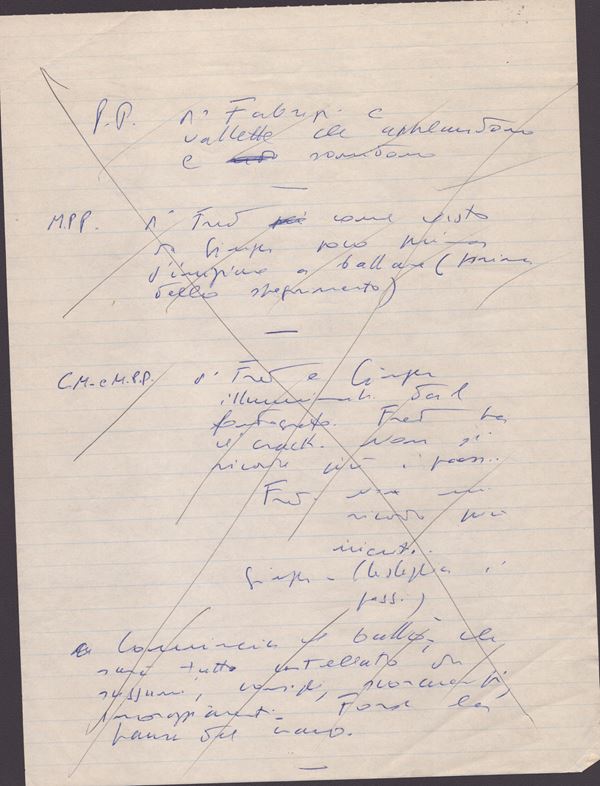 P.P. di Fabrizi e
vallette che applaudono
e sorridono
M.P.P. di Fred come visto
da Ginger poco prima
d'iniziare a ballare (prima
dello spegnimento)
C.M. e M.P.P. di Fred e Ginger
illuminati dal
Fred ha
il crack. Non si
ricorda più i passi.
Fred - non mi
ricordo più
niente.
Ginger - (bisbiglia i
passi)
Comincia il ballo, che
sarà tutto intessuto di
sussurri, consigli,
Forse la
paura del vuoto.